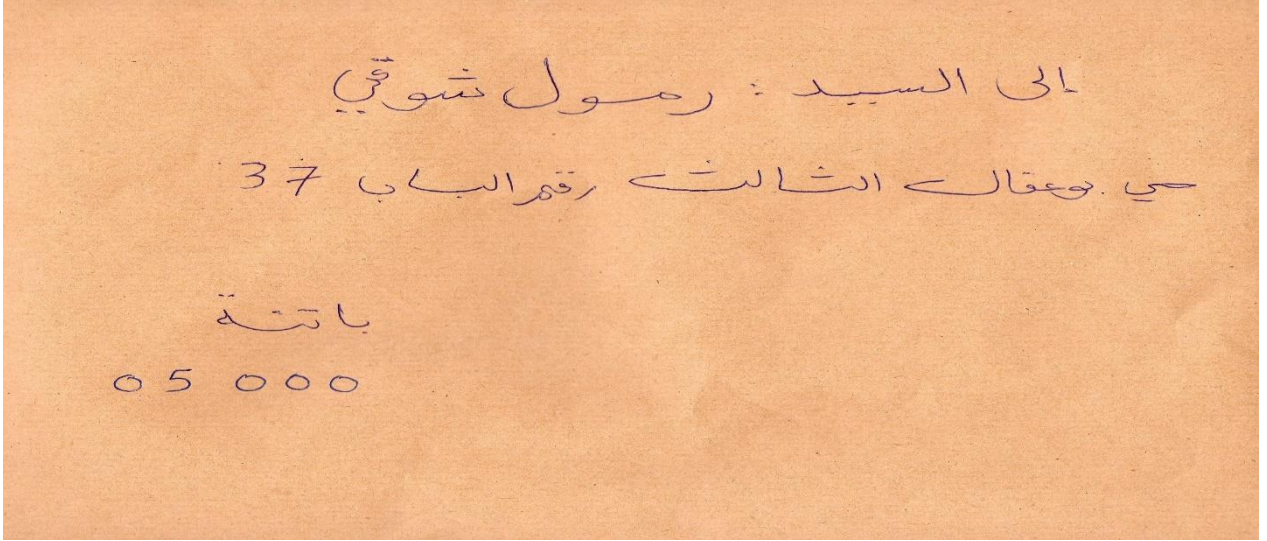 إلى السيد : رسول شوقي
حي بوعقال الثالث رقم الباب 37
باتنة
05 000